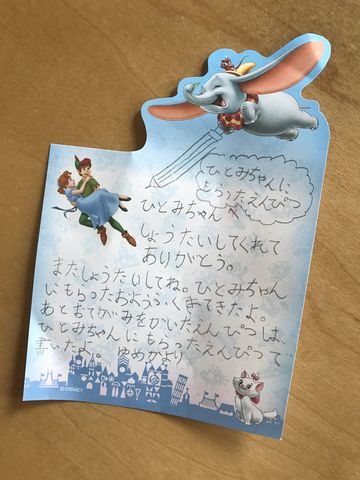 ひとみちゃんに
もらったえんぴつ
ひとみちゃんへ
しょうたいしてくれて
ありがとう。
またしょうたいしてね。ひとみちゃん
にもらったおようふくきてきたよ。
あとおてがみをかいたえんぴつは、
ひとみちゃんにもらったえんぴつで
書いたよ。ゆめかより
©DISNEY